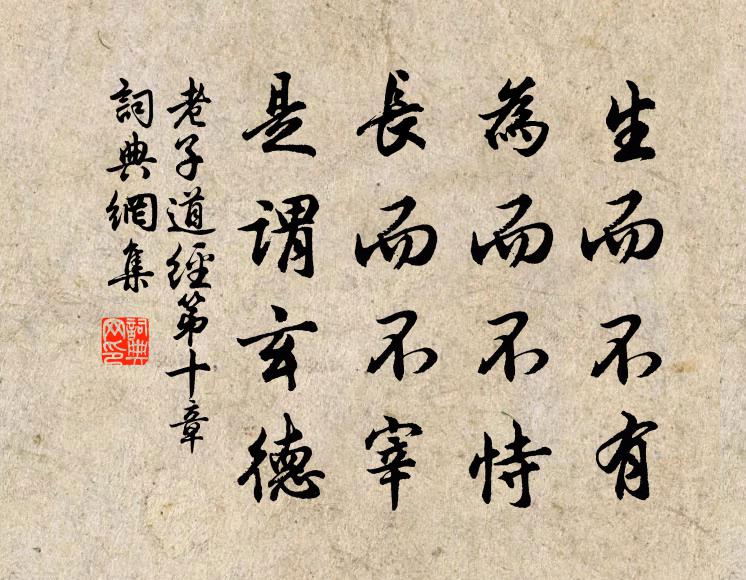 生而不有
為而不恃
長而不宰
是謂玄德
老子道經第十章
詞典網集
詞典网印